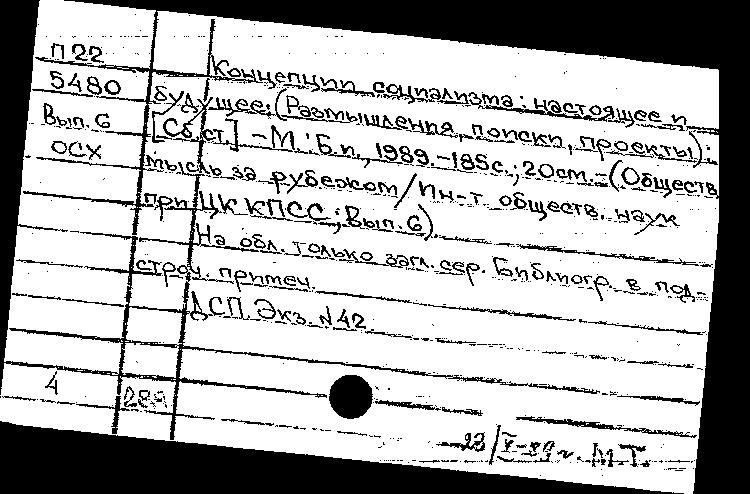 П 22
5480
Вып. 6
ОСХ
Концепции социализма: настоящее и
будущее: (Размышления, поиски, проекты):
[Сб. ст.] – М.: Б.и., 1989. – 185с.; 20см. – (Обществ.
мысль за рубежом / Ин-т обществ. наук
при ЦК КПСС; Вып. 6)
На обл. только загл. сер. Библиогр. в под-
строч. примеч.
ДСП. Экз. N42
4
289
23/X-89 г. М.Т.